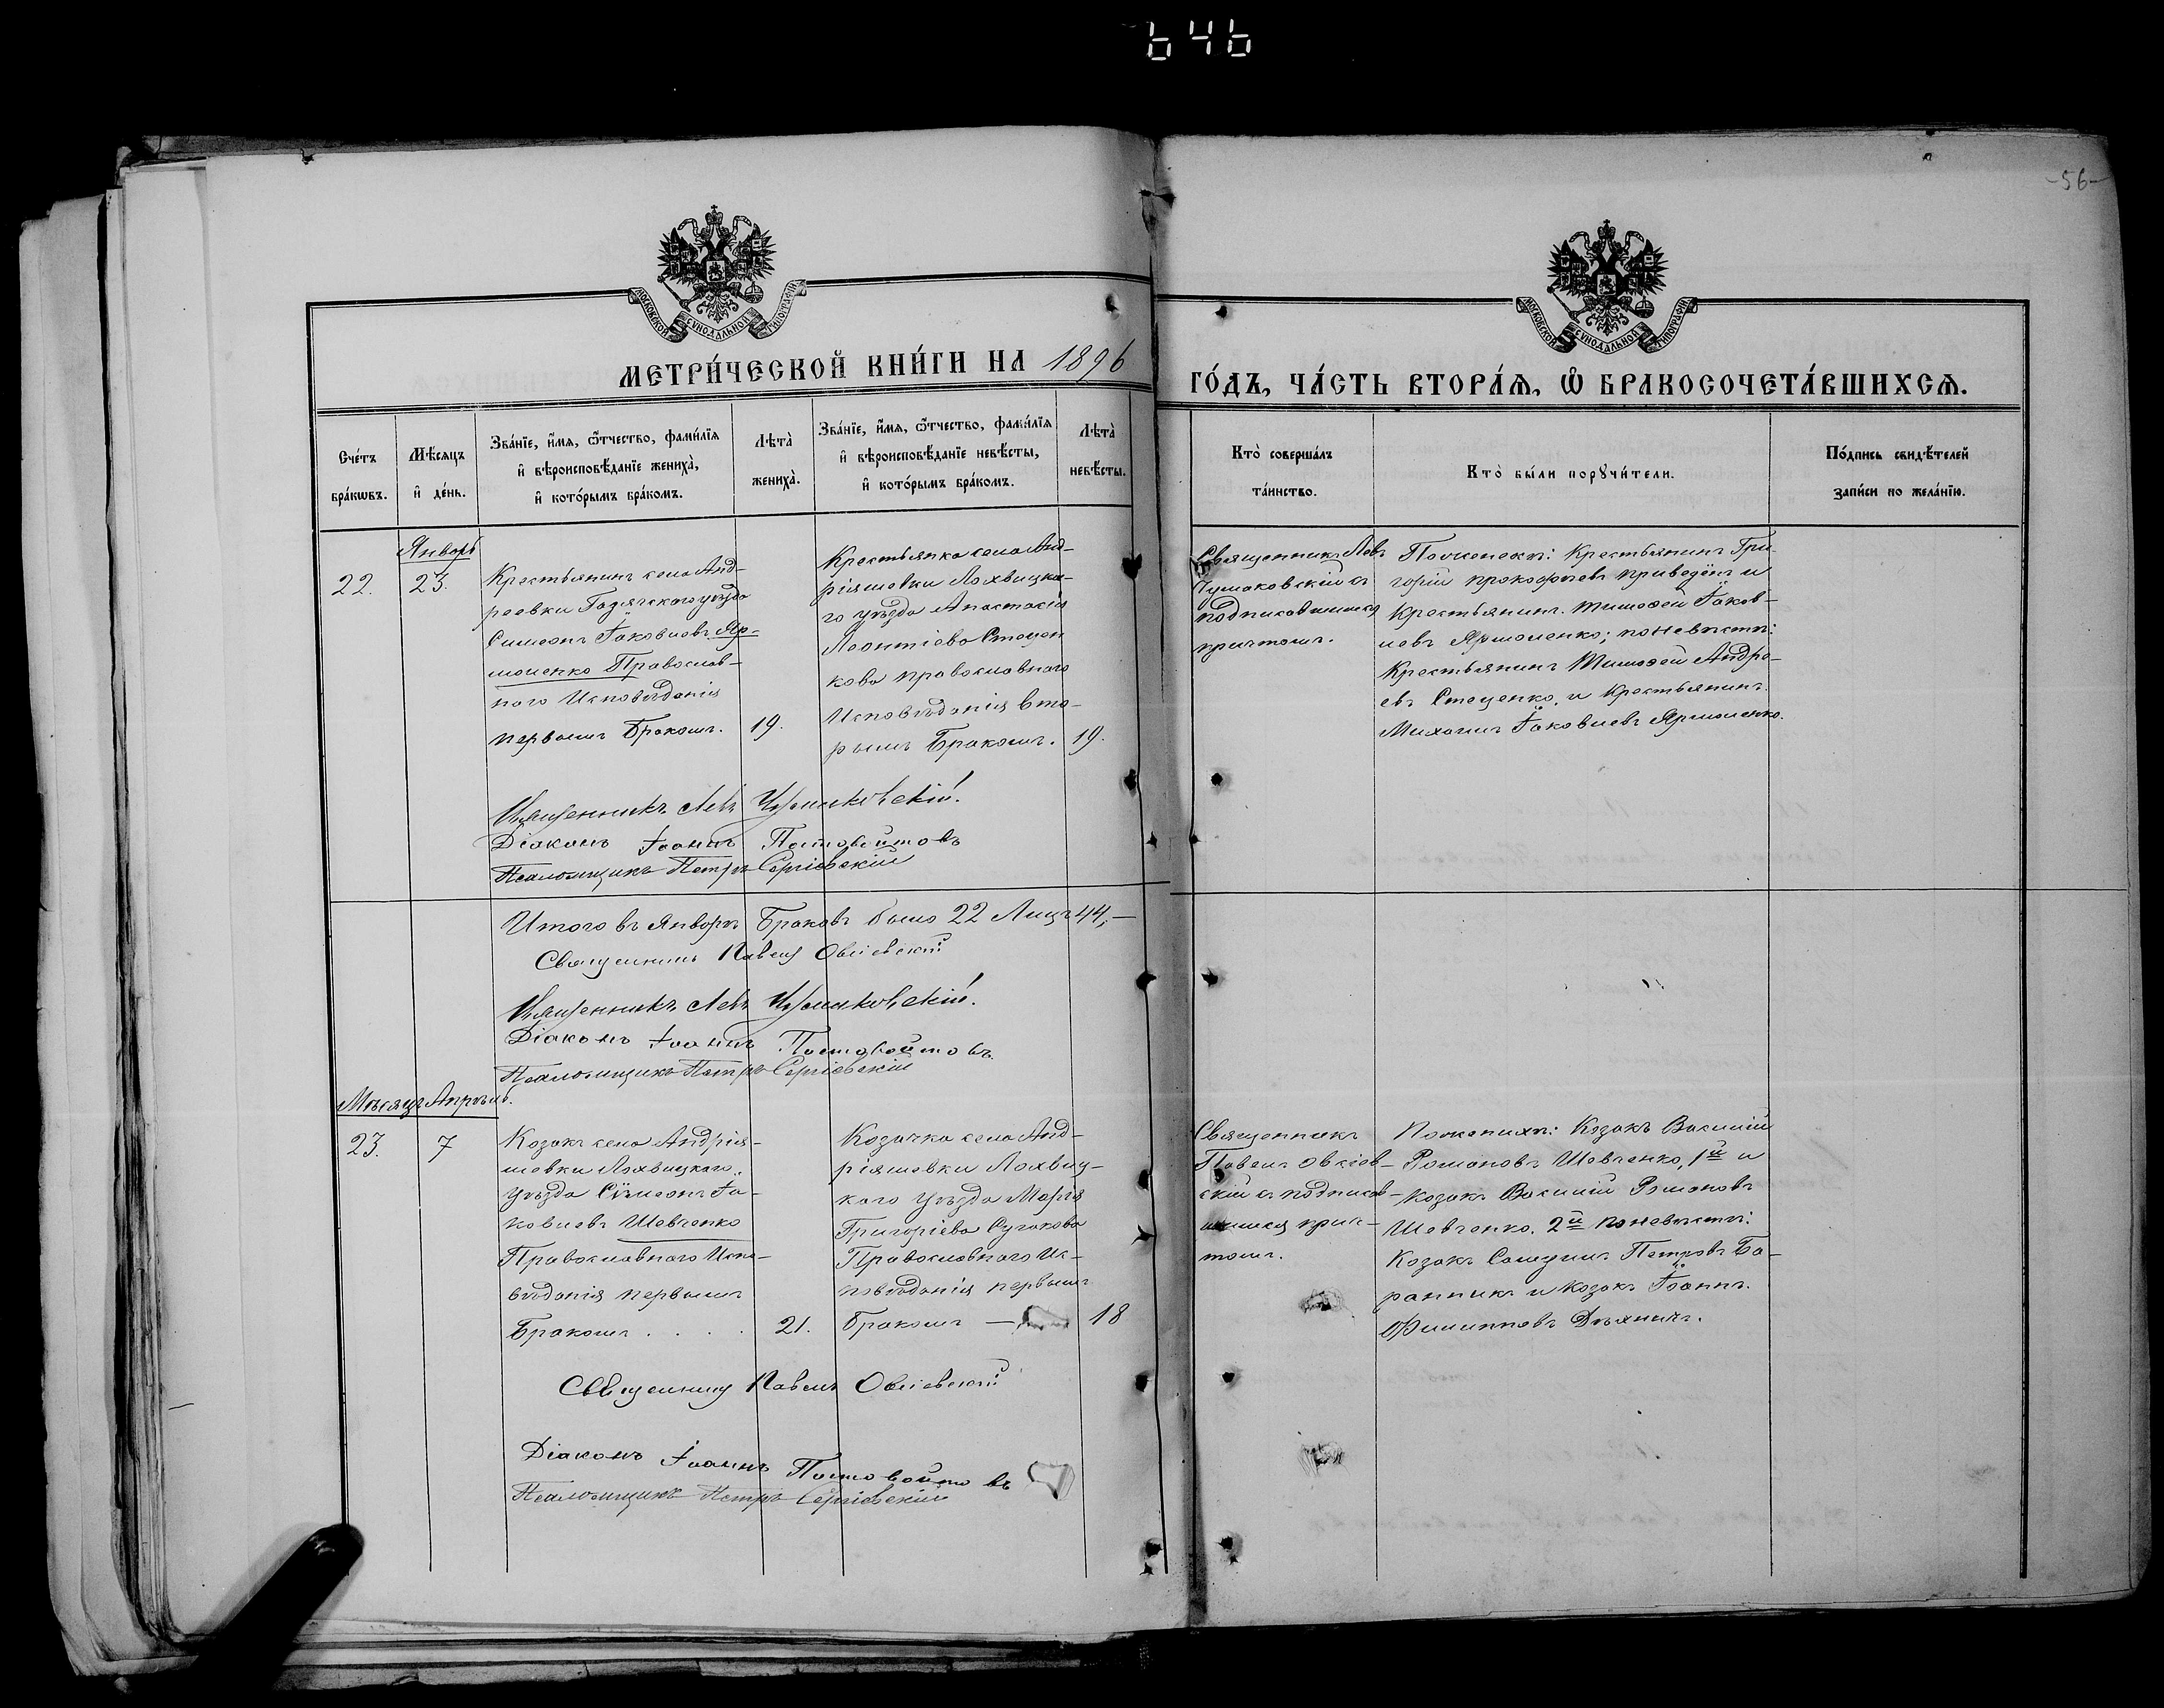 646
-56-
МОСКОВСКОЙ СѴНОДАЛЬНОЙ ТИПОГРАФІИ
МОСКОВСКОЙ СѴНОДАЛЬНОЙ ТИПОГРАФІИ
МЕТРИ́ЧЕСКОЙ КНИ́ГИ НА 1896
ГО́ДЪ, ЧА́СТЬ ВТОРА́Ѧ, Ѽ БРАКОСОЧЕТА́ВШИХСѦ.
Сче́тъ
бра́кѡвъ.
Мѣ́сяцъ
и҆ де́нь.
Зва́нїе, и҆́мѧ, ѻ҆́тчество, фами́лїѧ
и҆ вѣроисповѣ́данїе жениха̀,
и҆ кото́рымъ бра́комъ.
Лѣта̀
жениха̀.
Зва́нїе, и҆́мѧ, ѻ҆́тчество, фами́лїѧ
и҆ вѣроисповѣ́данїе невѣ́сты,
и҆ кото́рымъ бра́комъ.
Лѣта̀
невѣ́сты.
Кто̀ соверша́лъ
та́инство.
Кто̀ бы́ли порꙋчи́тели.
По́дпись свидѣ́телей
за́писи по жела́нїю.
Январь
22.
23.
Крестьянинъ села Анд-
реевки Гадячскаго уѣзда
Симеонъ Іаковлевъ Яр-
моленко Православ-
наго Исповѣданія
первымъ Бракомъ.
19.
Крестьянка села Анд-
ріяшевки Лохвицка-
го уѣзда Анастасія
Леонтіева Стецен
кова православнаго
Исповѣданія вто-
рымъ Бракомъ.
19.
Священникъ Левъ
Чушаковскій съ
подписавшимся
причтомъ.
По женихѣ: Крестьянинъ Гри-
горій Прокофіевъ Приведенъ и
Крестьянинъ Тимофей Іаков-
левъ Ярмоленко; по невѣстѣ:
Крестьянинъ Тимофей Андре-
евъ Стеценко, и Крестьянинъ
Михаилъ Іаковлевъ Ярмоленко.
Священникъ Левъ Чушаковскій.
Діаконъ Іоаннъ Постовойтовъ
Псаломщикъ Петръ Сергіевскій
Итого въ Январѣ Браковъ было 22 Лицъ 44,—
Священникъ Павелъ Овсіевскій
Священникъ Левъ Чушаковскій.
Діаконъ Іоаннъ Постовойтовъ.
Псаломщикъ Петръ Сергіевскій
Мѣсяцъ Апрѣль.
23.
7
Козакъ села Андрія-
шевки Лохвицкаго
уѣзда Сѵмеонъ Іа-
ковлевъ Шевченко
Православнаго Испо-
вѣданія первымъ
Бракомъ . . . .
21.
Козачка села Анд-
ріяшевки Лохвиц-
каго уѣзда Марія
Григоріева Сучкова
Православнаго Ис-
повѣданія первымъ
Бракомъ —
18
Священникъ
Павелъ Овсіев-
скій съ подписав-
шимся прич-
томъ.
По женихѣ: Козакъ Василій
Романовъ Шевченко, 1й и
Козакъ Василій Романовъ
Шевченко. 2й по невѣстѣ:
Козакъ Самуилъ Петровъ Ба-
ранникъ и Козакъ Іоаннъ
Филипповъ
Священникъ Павелъ Овсіевскій
Діаконъ Іоаннъ Постовойтовъ
Псаломщикъ Петръ Сергіевскій